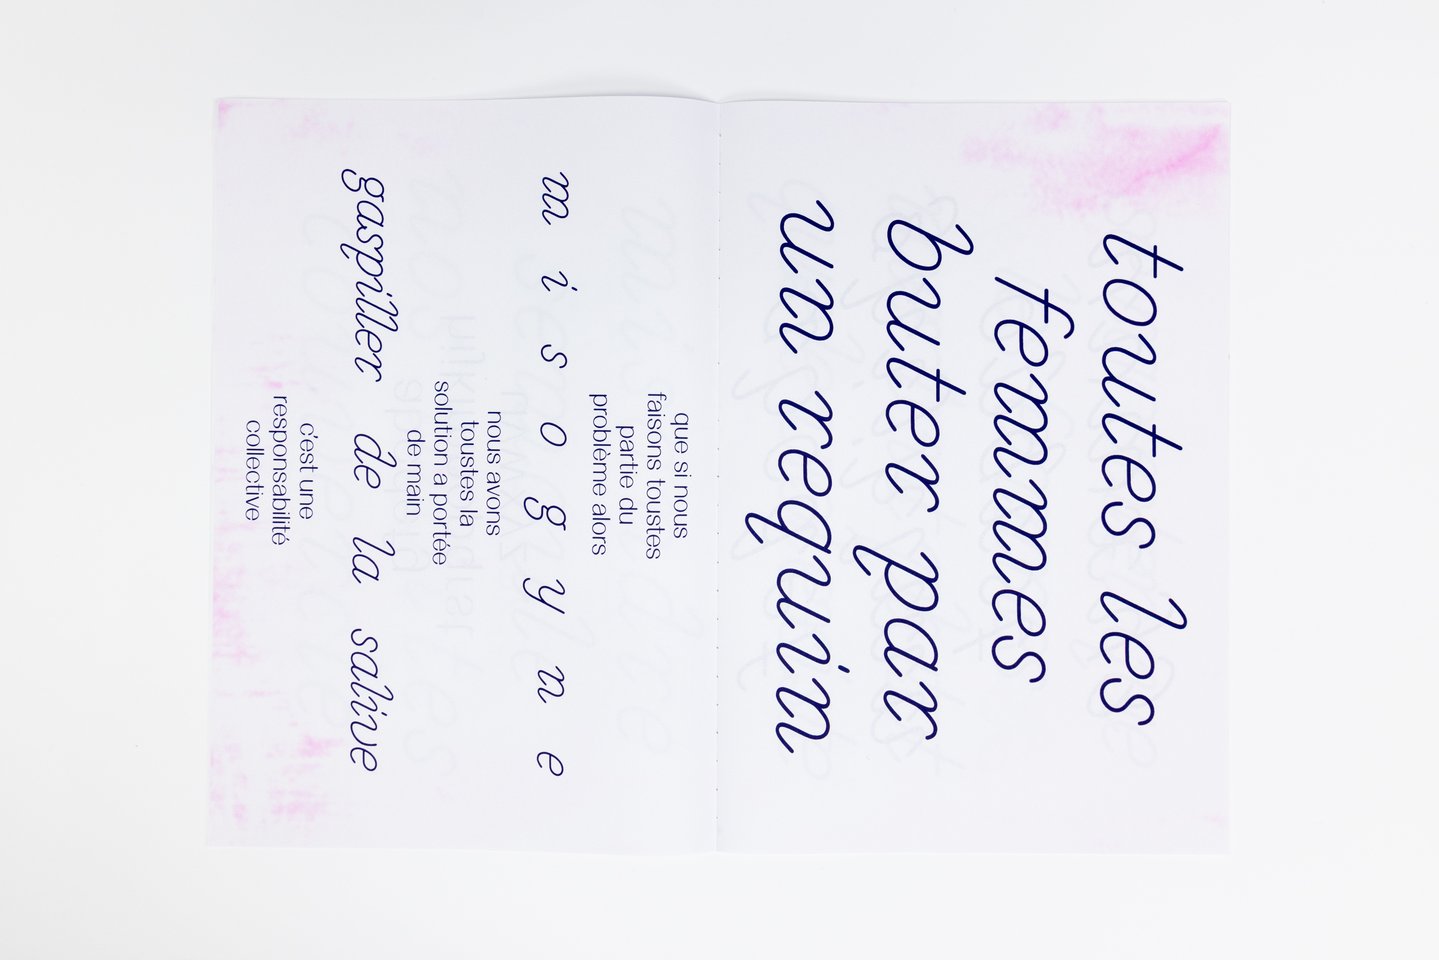 toutes les
femmes
buter par
un requin
que si nous
faisons toustes
partie du
problème alors
misogyne
nous avons
toustes la
solution a portée
de main
gaspiller de la salive
c'est une
responsabilité
collective